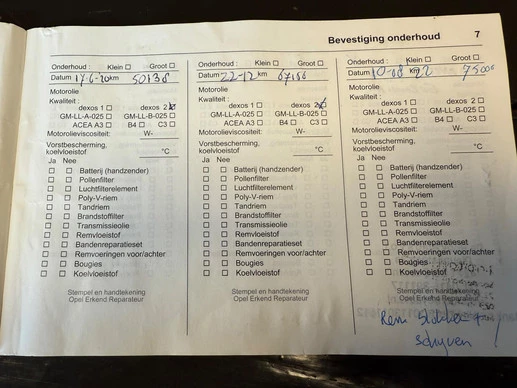 Bevestiging onderhoud 7
Onderhoud : Klein ☐ Groot ☐
Datum 17-6-20 km 50138
Motorolie
Kwaliteit :
dexos 1 ☐ dexos 2 ☒
GM-LL-A-025 ☐ GM-LL-B-025 ☐
ACEA A3 ☐ B4 ☐ C3 ☐
Motorolieviscositeit: W-
Vorstbescherming,
koelvloeistof °C
Ja Nee
☐ ☐ Batterij (handzender)
☐ ☐ Pollenfilter
☐ ☐ Luchtfilterelement
☐ ☐ Poly-V-riem
☐ ☐ Tandriem
☐ ☐ Brandstoffilter
☐ ☐ Transmissieolie
☐ ☐ Remvloeistof
☐ ☐ Bandenreparatieset
☐ ☐ Remvoeringen voor/achter
☐ ☐ Bougies
☐ ☐ Koelvloeistof
Stempel en handtekening
Opel Erkend Reparateur
Onderhoud : Klein ☐ Groot ☐
Datum 22-12 km 67186
Motorolie
Kwaliteit :
dexos 1 ☐ dexos 2 ☒
GM-LL-A-025 ☐ GM-LL-B-025 ☐
ACEA A3 ☐ B4 ☐ C3 ☐
Motorolieviscositeit: W-
Vorstbescherming,
koelvloeistof °C
Ja Nee
☐ ☐ Batterij (handzender)
☐ ☐ Pollenfilter
☐ ☐ Luchtfilterelement
☐ ☐ Poly-V-riem
☐ ☐ Tandriem
☐ ☐ Brandstoffilter
☐ ☐ Transmissieolie
☐ ☐ Remvloeistof
☐ ☐ Bandenreparatieset
☐ ☐ Remvoeringen voor/achter
☐ ☐ Bougies
☐ ☐ Koelvloeistof
Stempel en handtekening
Opel Erkend Reparateur
Onderhoud : Klein ☐ Groot ☐
Datum km
Motorolie
Kwaliteit :
dexos 1 ☐ dexos 2 ☐
GM-LL-A-025 ☐ GM-LL-B-025 ☐
ACEA A3 ☐ B4 ☐ C3 ☐
Motorolieviscositeit: W-
Vorstbescherming,
koelvloeistof °C
Ja Nee
☐ ☐ Batterij (handzender)
☐ ☐ Pollenfilter
☐ ☐ Luchtfilterelement
☐ ☐ Poly-V-riem
☐ ☐ Tandriem
☐ ☐ Brandstoffilter
☐ ☐ Transmissieolie
☐ ☐ Remvloeistof
☐ ☐ Bandenreparatieset
☐ ☐ Remvoeringen voor/achter
☐ ☐ Bougies
☐ ☐ Koelvloeistof
Stempel en handtekening
Opel Erkend Reparateur
schyven